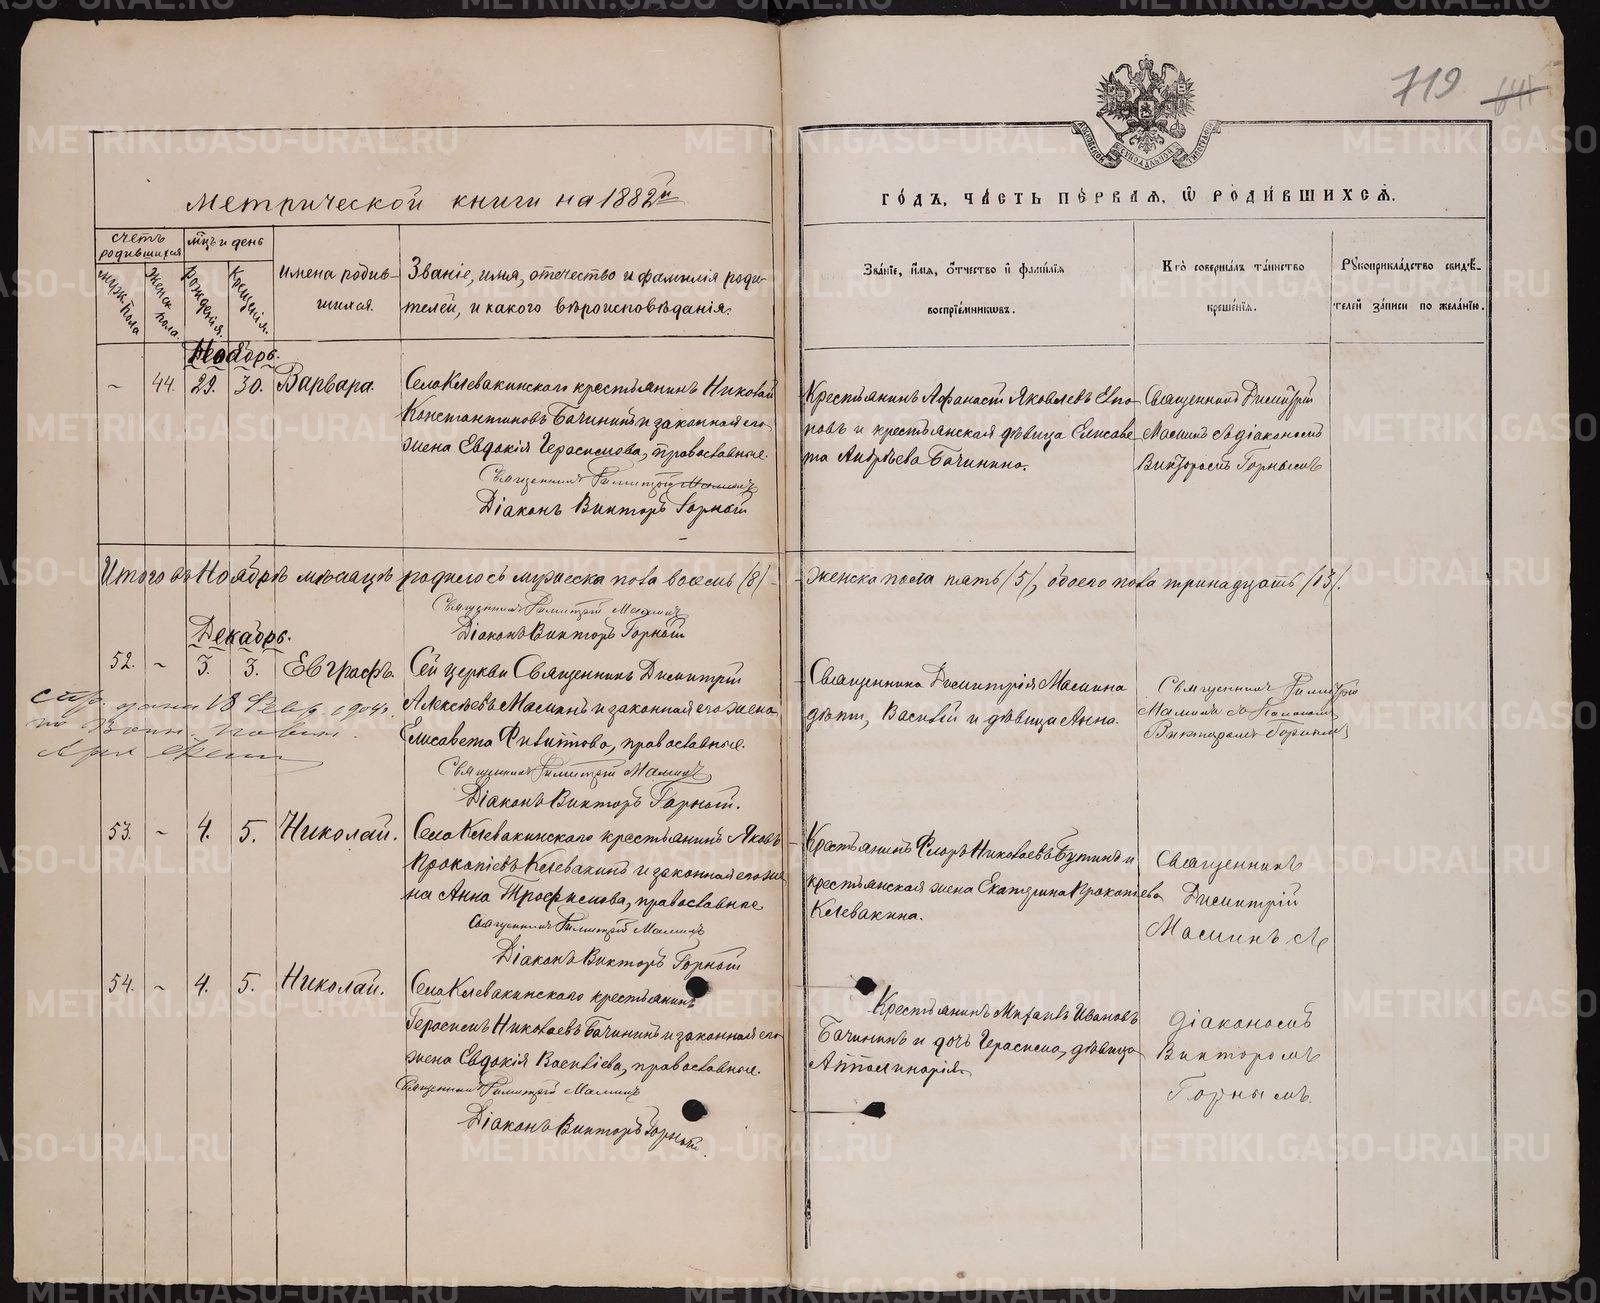 719
641
Метрической книги на 1882й
Счетъ родившихся
мужск. пола
Женск. пола.
Мцъ и день
рожденія.
Крещенія.
Имена родив-
шихся.
Званіе, имя, отчество и фамилія роди-
телей, и какого вѣроисповѣданія.
МОСКОВСКОЙ СѴНОДАЛЬНОЙ ТИПОГРАФІИ
ГОДЪ, ЧАСТЬ ПЕРВАЯ, Ѡ РОДИВШИХСЯ.
Званіе, имя, отчество и фамилія
воспріемниковъ.
Кто совершалъ таинство
крещенія.
Рукоприкладство свидѣ-
телей записи по желанію.
Ноябрь.
~ 44. 29. 30. Варвара. Села Клевакинскаго крестьянинъ Николай
Константиновъ Бачининъ и законная его
жена Евдокія Герасимова, православные.
Священникъ Димитрій Маминъ
Діаконъ Викторъ Горный
Крестьянинъ Афанасій Яковлевъ Его-
ровъ и крестьянская дѣвица Елисаве-
та Андрѣева Бачинина.
Священникъ Димитрій
Маминъ съ діакономъ
Викторомъ Горнымъ
Итого въ Ноябрѣ мѣсяцѣ родилось мужеска пола восемь /8/ -
- женска пола пять /5/, обоего пола тринадцать /13/.
Священникъ Димитрій Маминъ
Діаконъ Викторъ Горный
Декабрь.
52. ~ 3. 3. Евграфъ. Сей церкви Священникъ Димитрій
Алексѣевъ Маминъ и законная его жена
Елисавета Филиппова, православные.
Священникъ Димитрій Маминъ
Діаконъ Викторъ Горный.
дана 18 Февр. 1904 г.
по Воин. повин.
Священника Димитрія Мамина
дѣти, Василій и дѣвица Анна.
Священникъ Димитрій
Маминъ съ Діакономъ
Викторомъ Горнымъ
53. ~ 4. 5. Николай. Села Клевакинскаго крестьянинъ Яковъ
Прокопіевъ Клевакинъ и законная его же-
на Анна Трофимова, православные
Священникъ Димитрій Маминъ
Діаконъ Викторъ Горный
Крестьянинъ Флоръ Николаевъ Бутинъ и
крестьянская жена Екатерина Прокопіева
Клевакина.
Священникъ
Димитрій
Маминъ
54. ~ 4. 5. Николай. Села Клевакинскаго крестьянинъ
Герасимъ Николаевъ Бачининъ и законная его
жена Евдокія Василіева, православные.
Священникъ Димитрій Маминъ
Діаконъ Викторъ Горный.
Крестьянинъ Михаилъ Ивановъ
Бачининъ и дочь Герасима, дѣвица
Апполинарія.
Діакономъ
Викторомъ
Горнымъ.
METRIKI.GASO-URAL.RU